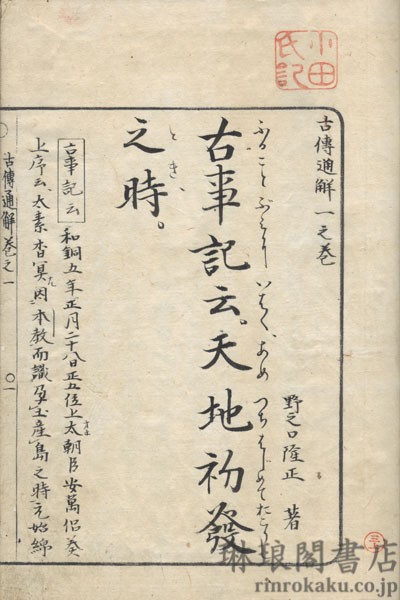 小田氏記
古傳通解一之巻
野之口隆正 著
ふることぶみに いはく、あめ つち はじめてたこりし
古事記云。天地初發
とき
之時。
古事記云 和銅五年正月二十八日正五位上太朝臣安萬侶奏
上序云太素杳冥因本教而識孕土産嶋之時元始綿
古傳通解巻之一
〇一
琳琅閣書店
rinrokaku.co.jp